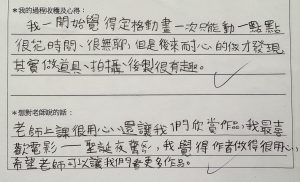 *我的過程收穫及心得:
我一開始覺得定格動畫一次只能動一點點
很花時間、很無聊,但是後來耐心的做才發現
其實做道具、拍攝、後製很有趣。
*想對老師說的話:
老師上課很用心,還讓我們欣賞作品,我最喜
歡電影——聖誕夜驚魂,我覺得作者做得很用心,
希望老師可以讓我們看更多作品。